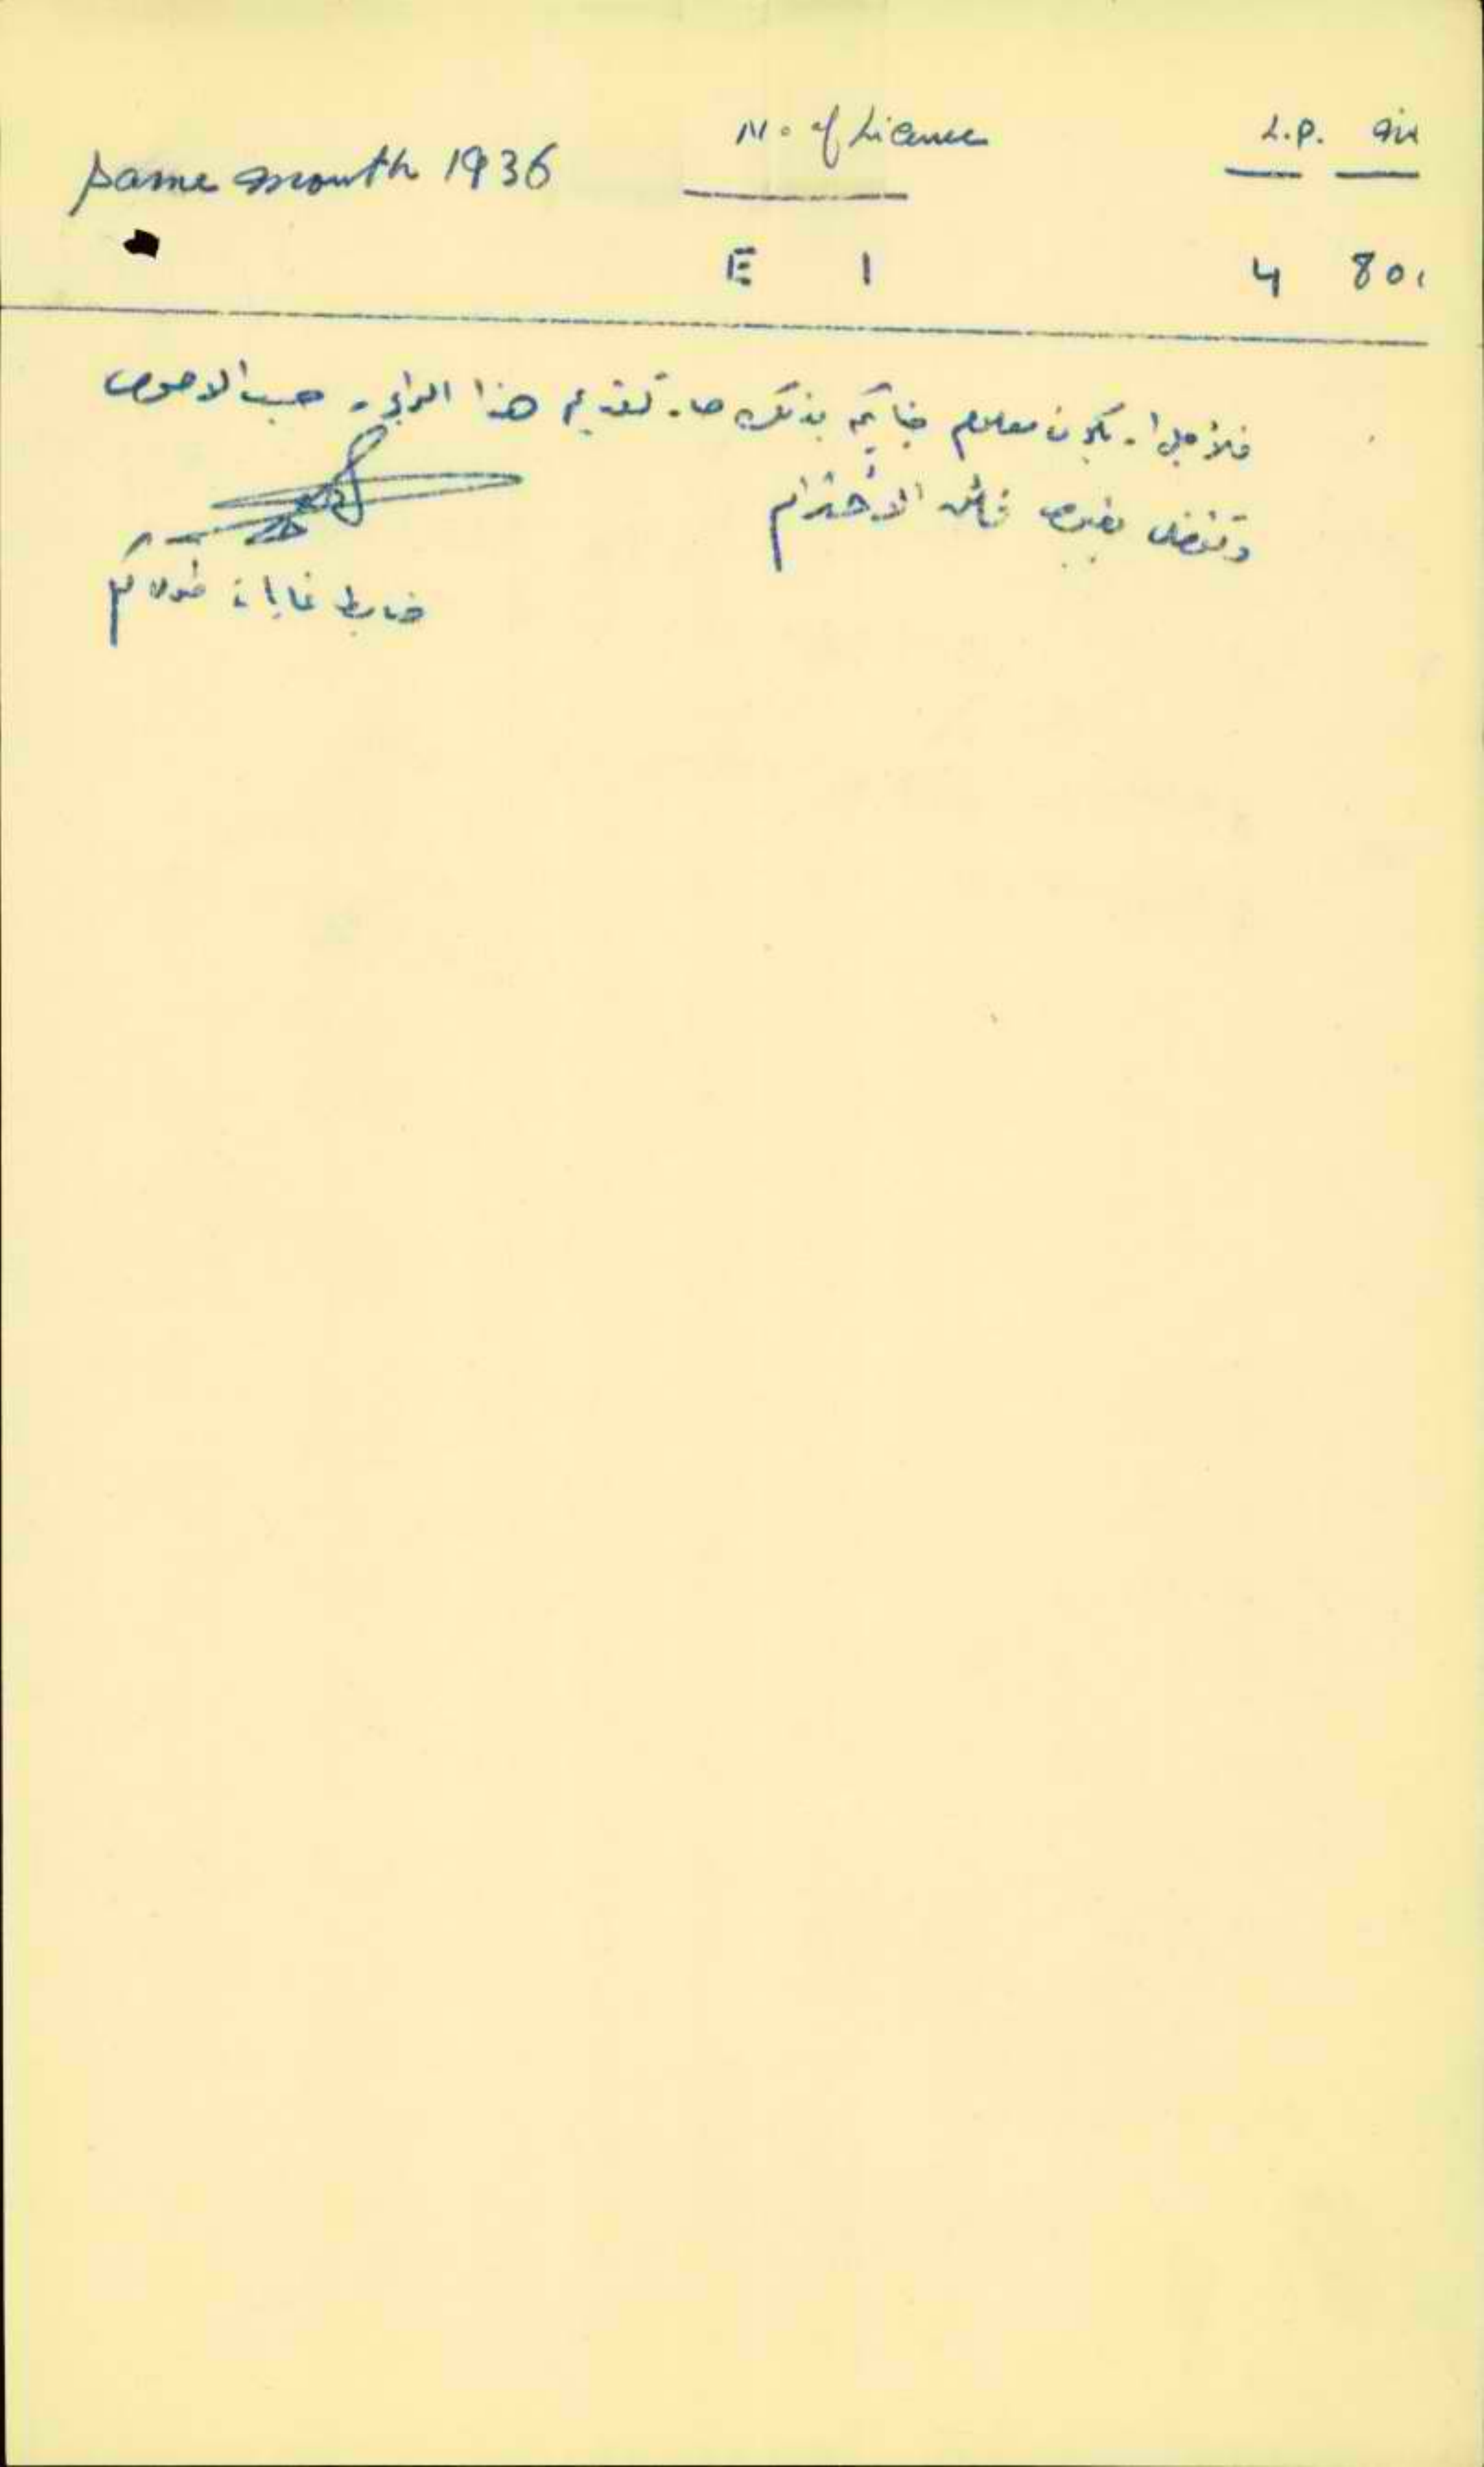 same month 1936 No of Licence L.P. Mils
E 1 4 801
فلأجل ان يكون معلوم جنابكم بذلك صار تقديم هذا الراپور حسب الاصول
وتفضلوا بقبول فائق الاحترام
ضابط غابات طولكرم